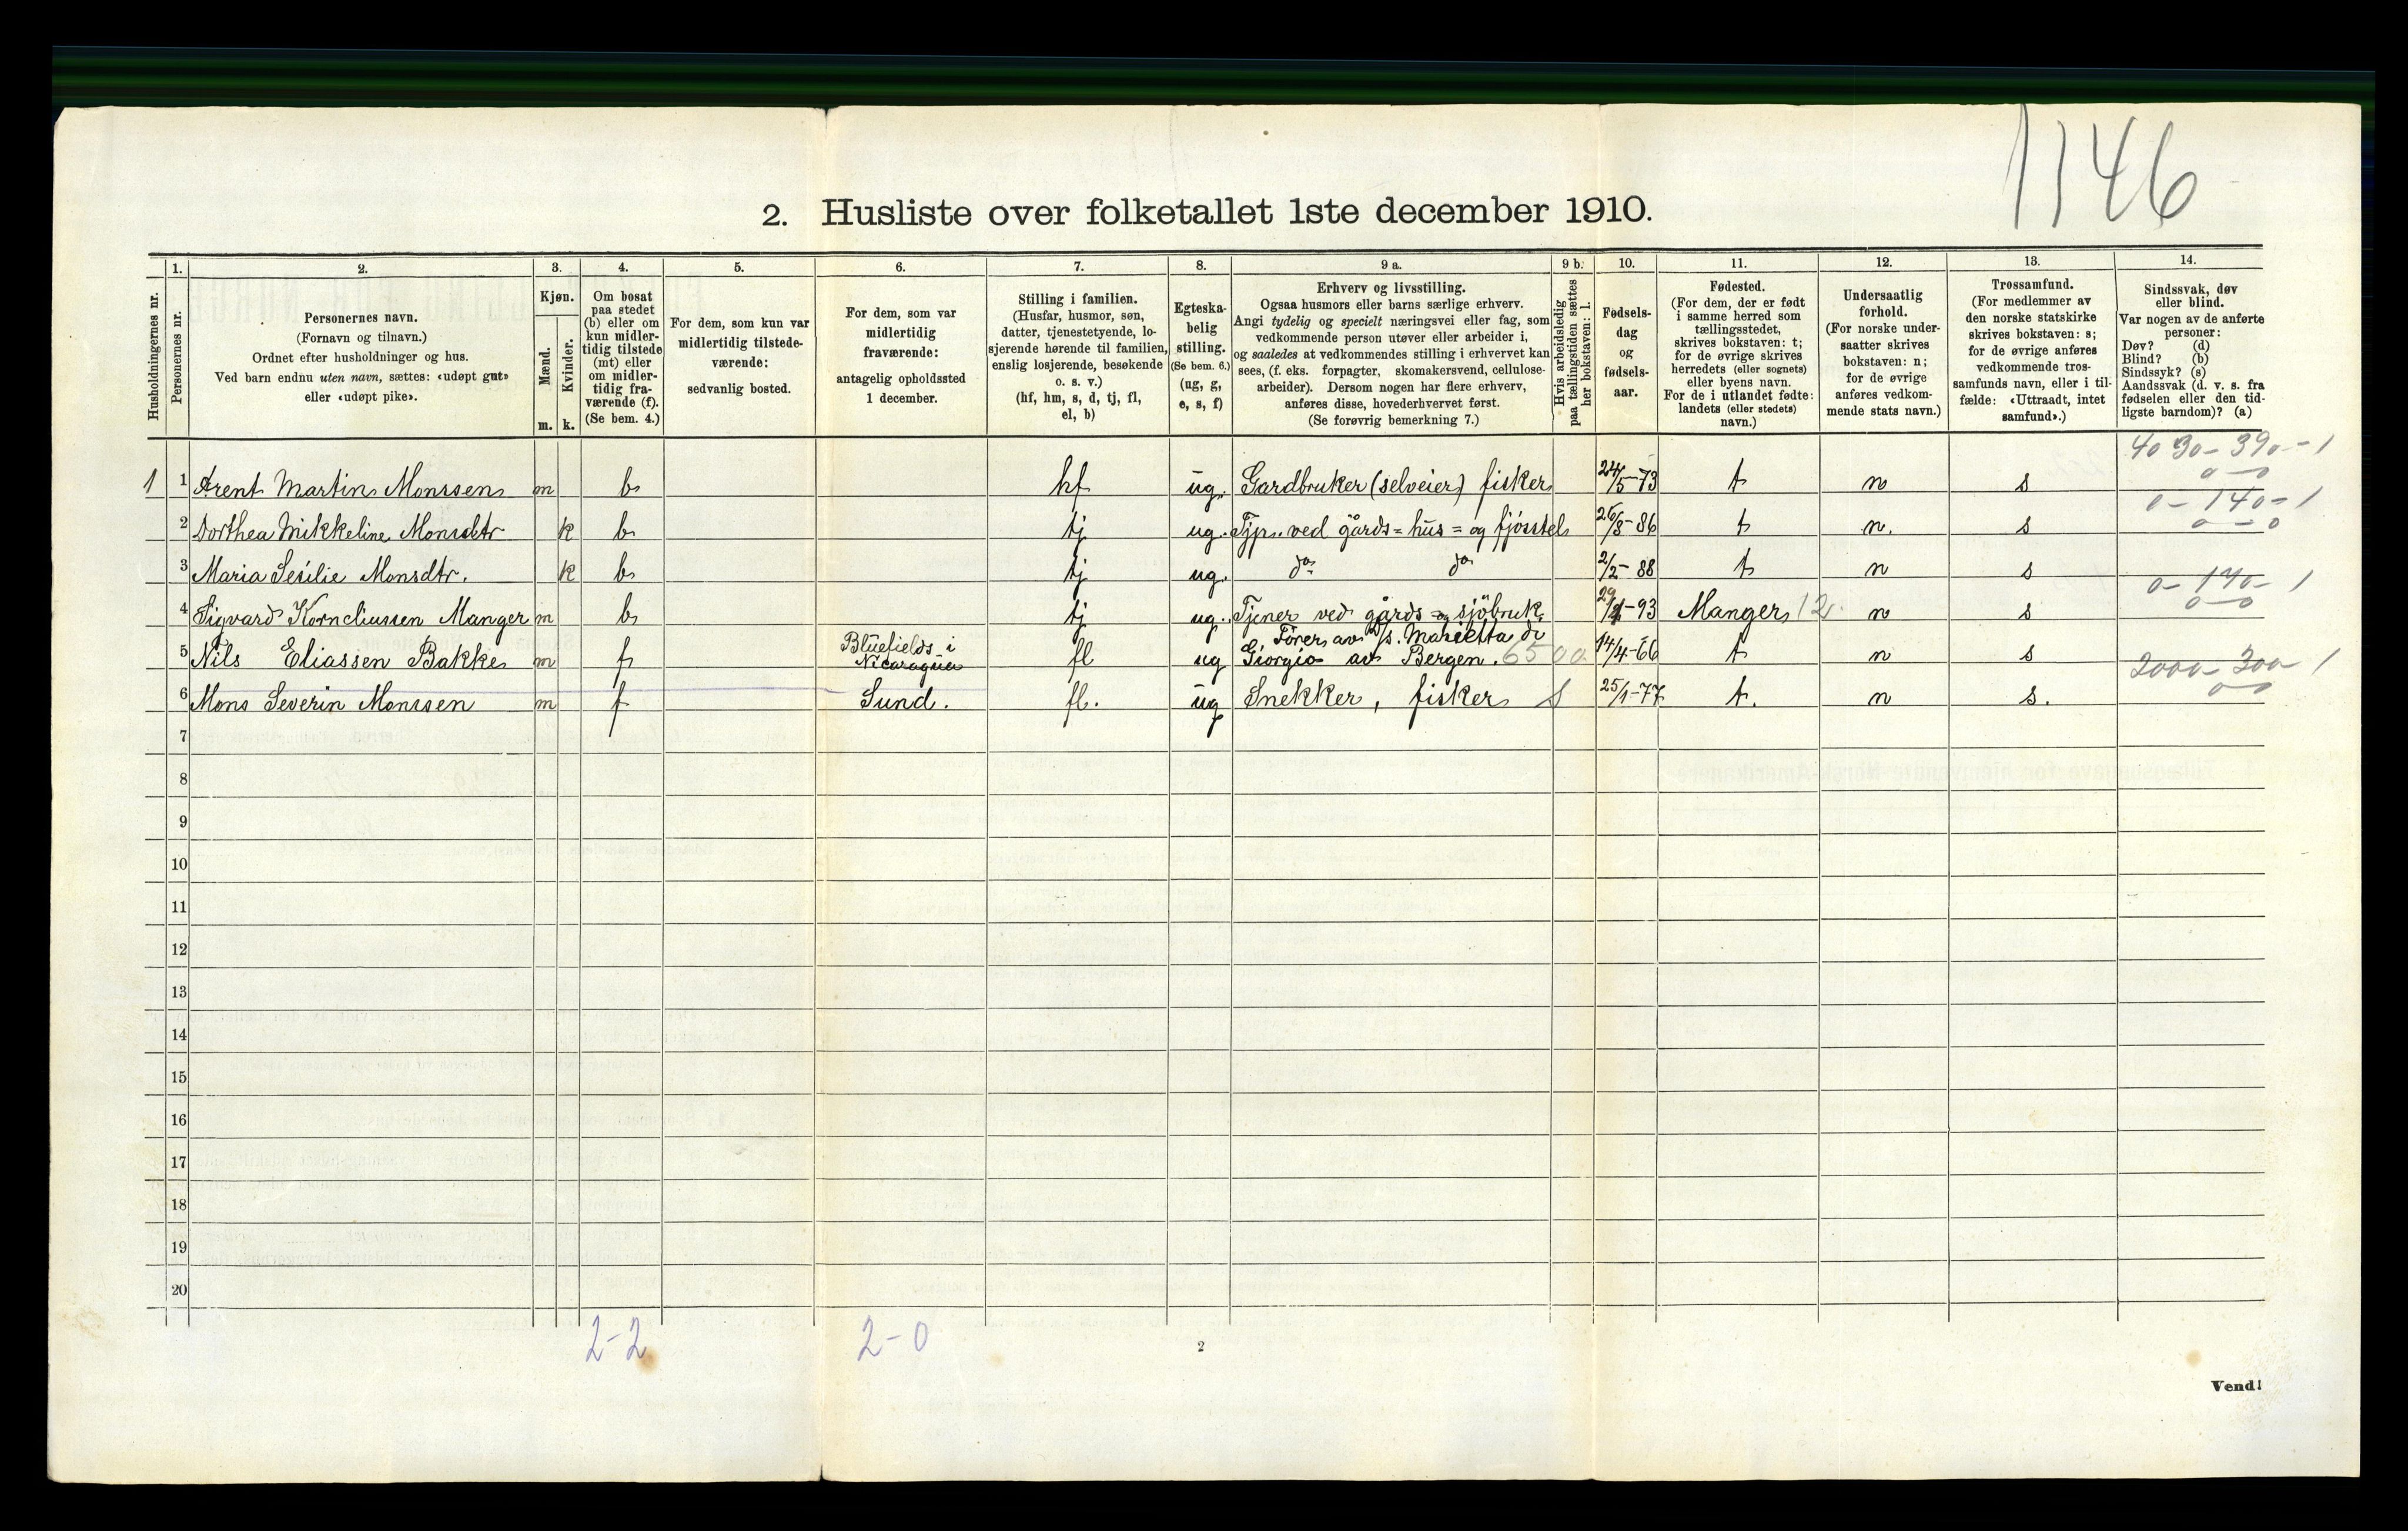 1146
2. Husliste over folketallet 1ste december 1910.
Husholdningernes nr.
1.
Personernes nr.
2.
Personernes navn.
(Fornavn og tilnavn.)
Ordnet efter husholdninger og hus.
Ved barn endnu uten navn, sættes: «udøpt gut»
eller «udøpt pike».
3.
Kjøn.
Mænd.
m.
Kvinder.
k.
4.
Om bosat
paa stedet
(b) eller om
kun midler-
tidig tilstede
(mt) eller
om midler-
tidig fra-
værende (f).
(Se bem. 4.)
5.
For dem, som kun var
midlertidig tilstede-
værende:
sedvanlig bosted.
6.
For dem, som var
midlertidig
fraværende:
antagelig opholdssted
1 december.
7.
Stilling i familien.
(Husfar, husmor, søn,
datter, tjenestetyende, lo-
sjerende hørende til familien,
enslig losjerende, besøkende
o. s. v.)
(hf, hm, s, d, tj, fl,
el, b)
8.
Egteska-
belig
stilling.
(Se bem. 6.)
(ug, g,
e, s, f)
9 a.
Erhverv og livsstilling.
Ogsaa husmors eller barns særlige erhverv.
Angi tydelig og specielt næringsvei eller fag, som
vedkommende person utøver eller arbeider i,
og saaledes at vedkommendes stilling i erhvervet kan
sees, (f. eks. forpagter, skomakersvend, cellulose-
arbeider). Dersom nogen har flere erhverv,
anføres disse, hovederhvervet først.
(Se forøvrig bemerkning 7.)
9 b.
Hvis arbeidsledig
paa tællingstiden sættes
her bokstaven: l.
10.
Fødsels-
dag
og
fødsels-
aar.
11.
Fødested.
(For dem, der er født
i samme herred som
tællingsstedet,
skrives bokstaven: t;
for de øvrige skrives
herredets (eller sognets)
eller byens navn.
For de i utlandet fødte:
landets (eller stedets)
navn.)
12.
Undersaatlig
forhold.
(For norske under-
saatter skrives
bokstaven: n;
for de øvrige
anføres vedkom-
mende stats navn.)
13.
Trossamfund.
(For medlemmer av
den norske statskirke
skrives bokstaven: s;
for de øvrige anføres
vedkommende tros-
samfunds navn, eller i til-
fælde: «Uttraadt, intet
samfund».)
14.
Sindssvak, døv
eller blind.
Var nogen av de anførte
personer:
Døv? (d)
Blind? (b)
Sindssyk? (s)
Aandssvak (d. v. s. fra
fødselen eller den tid-
ligste barndom)? (a)
1 1 Arent Martin Monssen m b hf ug. Gardbruker (selveier) fisker 24/5-73 t n s
0-0
2 Dorthea Mikkeline Monsdtr k b tj ug. Tjen. ved gårds= hus= og fjösstel 26/8-86 t n. s 0-140-1
0-0
3 Maria Sesilie Monsdtr. k b tj ug. do do 2/2-88 t n s
4 Sigvard Korneliussen Manger m b tj ug. Tjener ved gårds og sjöbruk Manger 12. n s 0-140-1
0-0
5 Nils Eliassen Bakke m f Bluefields i
Nicaragua fl ug Förer av D/s. Marietta di
Giorgio av Bergen. 6500 14/4-66 t n s
6 Mons Severin Monssen m f Sund. fl. ug Snekker, fisker 25/1-77 t. n s. 2000-300-1
0-0
7
8
9
10
11
12
13
14
15
16
17
18
19
20
2-2 2-0
2
Vend!